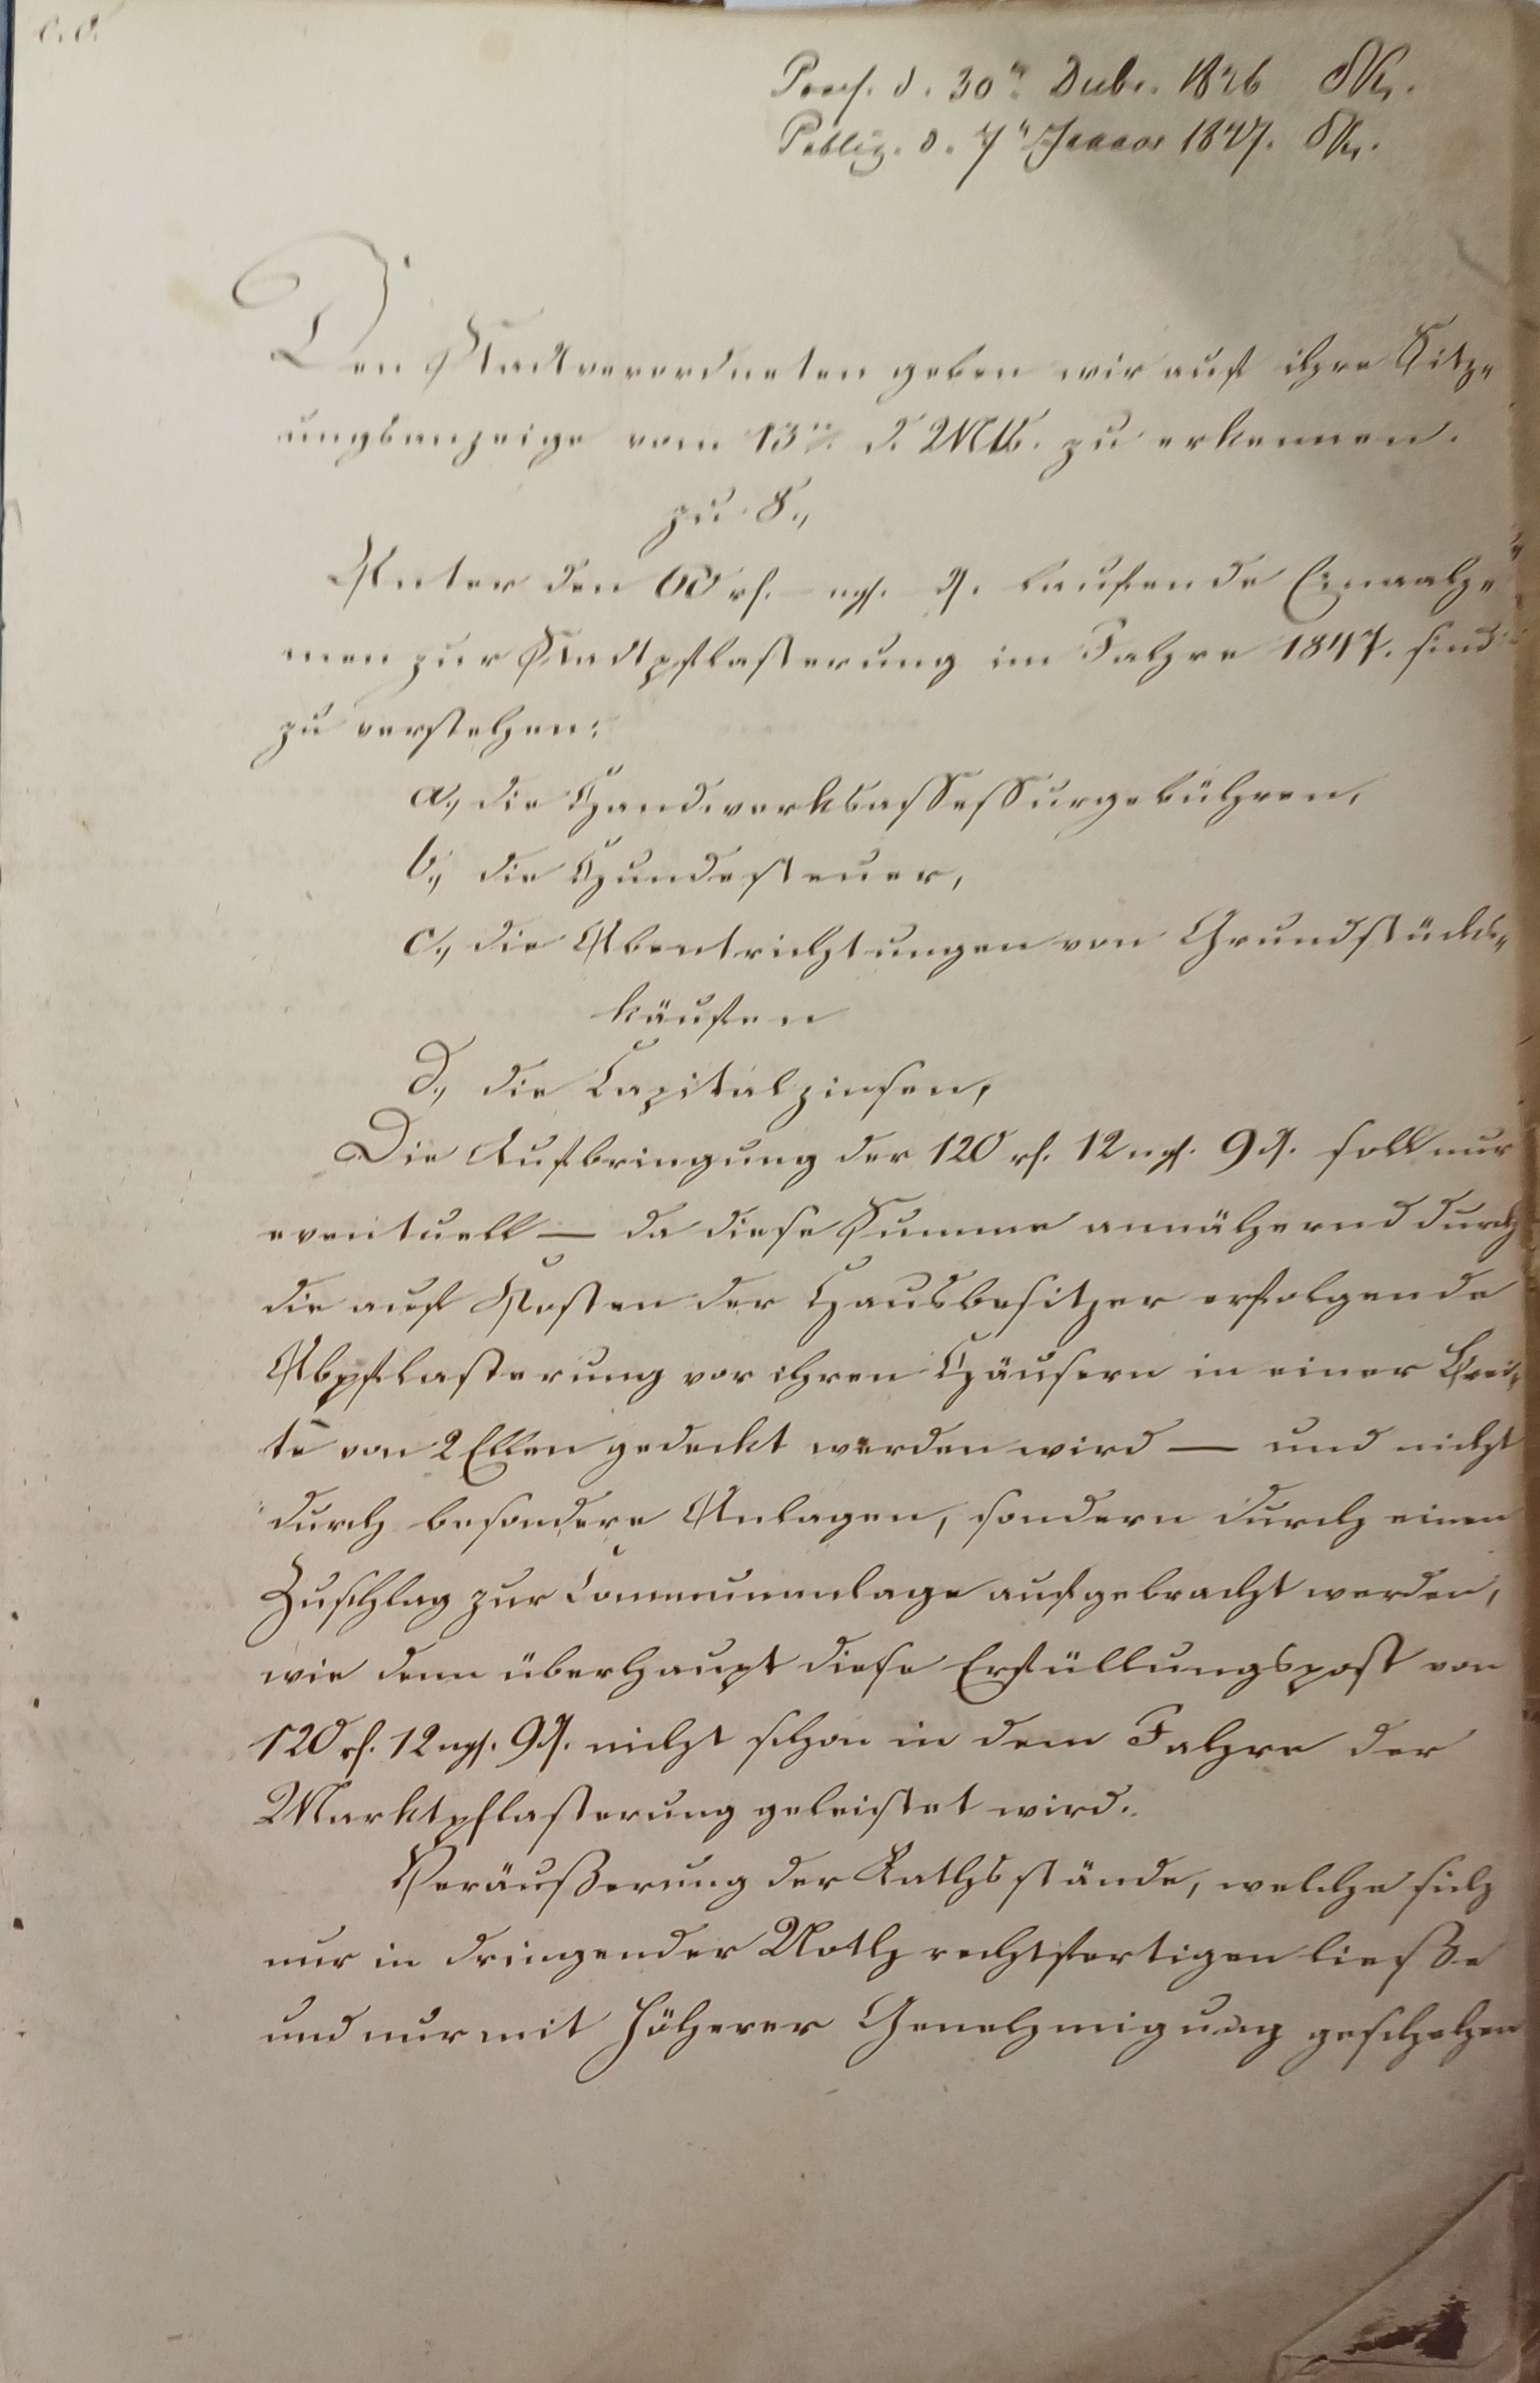 Praes. d. 30n Decbr. 1846
Publiz. d. 7n Januar 1847.
Den Stadtverordneten geben wir auf ihre Sitz-
ungsanzeige vom 13n d. Mts. zu erkennen.
zu 8.,
Unter den 60 rf. - ngf. - d. laufende Einnah-
men zur Stadtpflasterung im Jahre 1847. sind
zu verstehen:
a., die Handwerksassessurgebühren,
b., die Hundesteuer,
c., die Abentrichtungen von Grundstücks-
käufen
d., die Capitalzinsen,
Die Aufbringung der 120 rf. 12 ngf. 9 d. soll nur
eventuell — da diese Summe annähernd durch
die auf Kosten der Hausbesitzer erfolgende
Abpflasterung vor ihren Häusern in einer Brei-
te von 2 Ellen gedeckt werden wird — und nicht
durch besondere Anlagen, sondern durch einen
Zuschlag zur Communanlage aufgebracht werden,
wie denn überhaupt diese Erfüllungspost von
120 rf. 12 ngf. 9 d. nicht schon in dem Jahre der
Marktpflasterung geleistet wird.
Veräußerung der Rathsstände, welche sich
nur in dringender Noth rechtfertigen ließe
und nur mit höherer Genehmigung geschehen